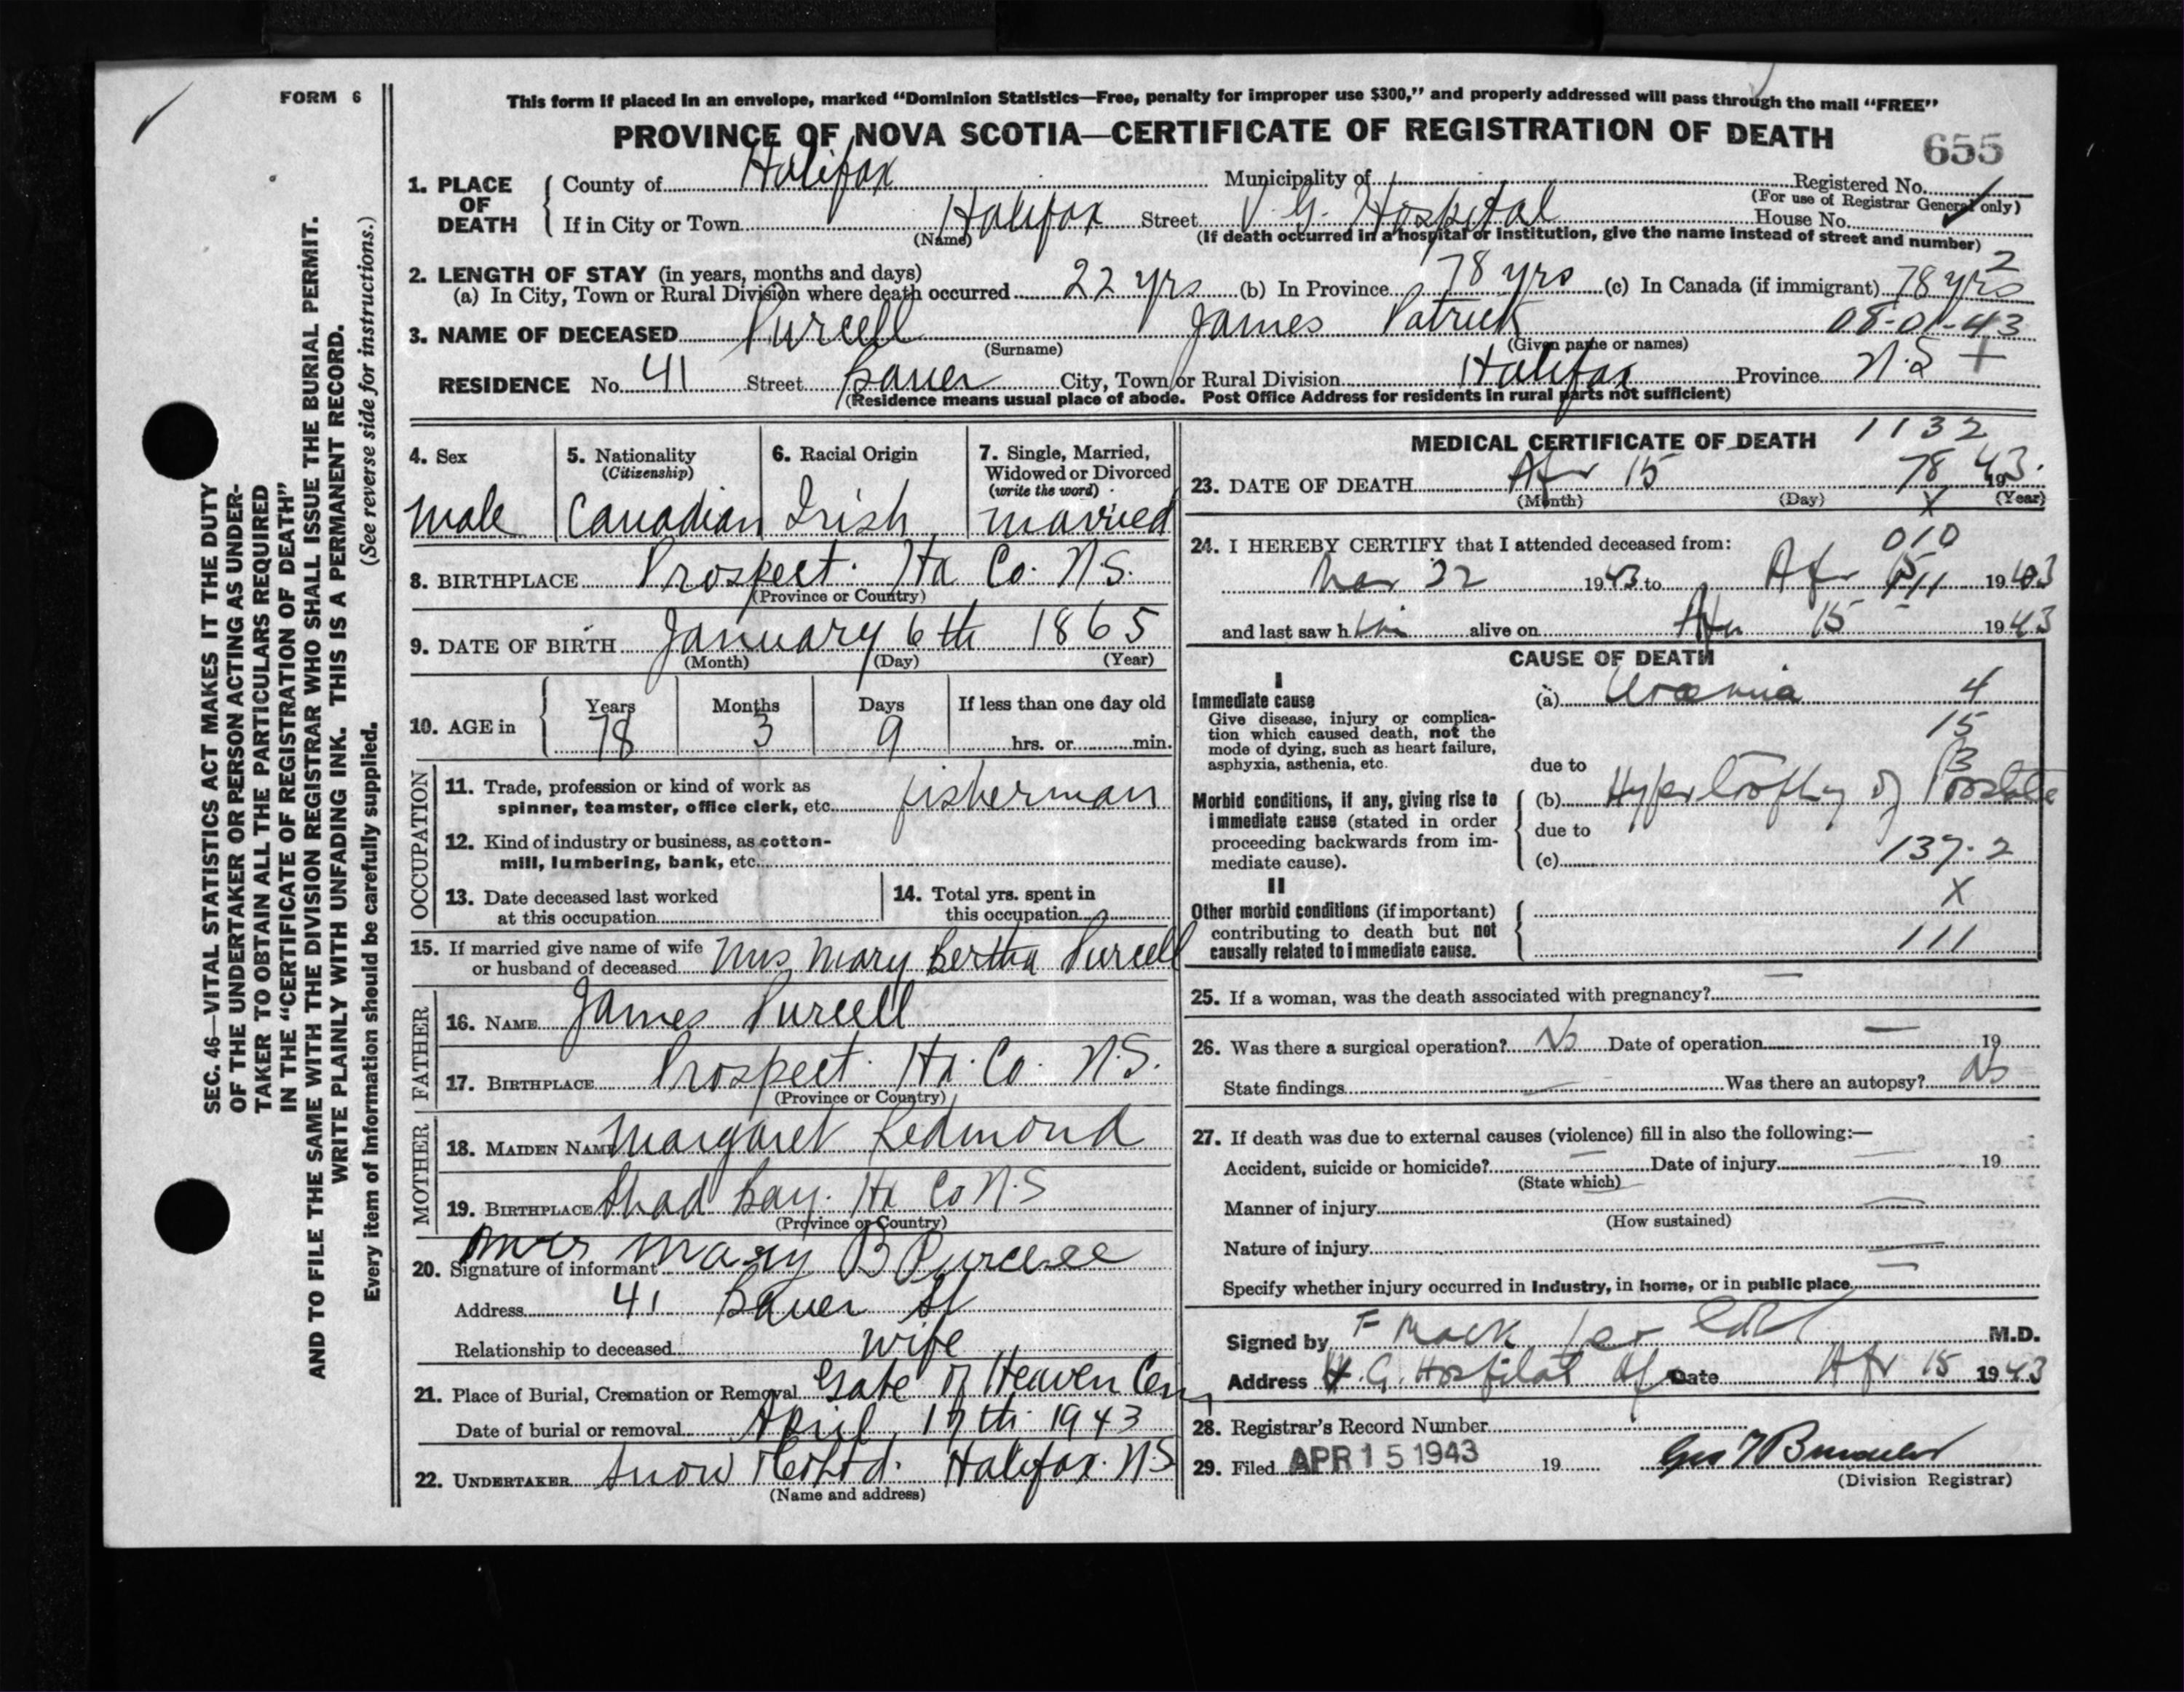 FORM 6
This form if placed in an envelope, marked “Dominion Statistics—Free, penalty for improper use $300,” and properly addressed will pass through the mail “FREE”
PROVINCE OF NOVA SCOTIA—CERTIFICATE OF REGISTRATION OF DEATH
655
1. PLACE OF DEATH
County of Halifax Municipality of Registered No.
(For use of Registrar General only)
If in City or Town Halifax Street V. G. Hospital House No.
(Name) (If death occurred in a hospital or institution, give the name instead of street and number)
2. LENGTH OF STAY (in years, months and days) 2
(a) In City, Town or Rural Division where death occurred 22 yrs (b) In Province 78 yrs (c) In Canada (if immigrant) 78 yrs
3. NAME OF DECEASED Purcell James Patrick 08-01-43
(Surname) (Given name or names)
RESIDENCE No. 41 Street Bauer City, Town or Rural Division Halifax Province N.S +
(Residence means usual place of abode. Post Office Address for residents in rural parts not sufficient)
4. Sex
male
5. Nationality
(Citizenship)
Canadian
6. Racial Origin
Irish
7. Single, Married,
Widowed or Divorced
(write the word)
married
8. BIRTHPLACE Prospect. Hx Co. N.S.
(Province or Country)
9. DATE OF BIRTH January 6th 1865
(Month) (Day) (Year)
10. AGE in
Years Months Days If less than one day old
78 3 9 hrs. or min.
OCCUPATION
11. Trade, profession or kind of work as
spinner, teamster, office clerk, etc. fisherman
12. Kind of industry or business, as cotton-
mill, lumbering, bank, etc.
13. Date deceased last worked
at this occupation
14. Total yrs. spent in
this occupation
15. If married give name of wife
or husband of deceased Mrs Mary Bertha Purcell
FATHER
16. NAME James Purcell
17. BIRTHPLACE Prospect. Hx. Co. N.S.
(Province or Country)
MOTHER
18. MAIDEN NAME Margaret Redmond
19. BIRTHPLACE Shad Bay. Hx Co N.S
(Province or Country)
20. Signature of informant Mrs Mary B Purcell
Address 41 Bauer St
Relationship to deceased wife
21. Place of Burial, Cremation or Removal Gate of Heaven Cem
Date of burial or removal April 17th 1943
22. UNDERTAKER Snow & Co Ltd. Halifax. NS
(Name and address)
MEDICAL CERTIFICATE OF DEATH 1132
78
23. DATE OF DEATH Apr 15 1943.
(Month) (Day) (Year)
X
24. I HEREBY CERTIFY that I attended deceased from:
010
Mar 22 1943 to Apr 15 1943
111
and last saw h im alive on Apr 15 1943
CAUSE OF DEATH
I
Immediate cause
Give disease, injury or complica-
tion which caused death, not the
mode of dying, such as heart failure,
asphyxia, asthenia, etc.
(a) Uraemia 4
15
B
due to
Morbid conditions, if any, giving rise to
immediate cause (stated in order
proceeding backwards from im-
mediate cause).
(b) Hypertrophy of Prostate
due to
(c) 137.2
II
Other morbid conditions (if important)
contributing to death but not
causally related to immediate cause.
X
111
25. If a woman, was the death associated with pregnancy? —
26. Was there a surgical operation? No Date of operation — 19
State findings — Was there an autopsy? No
27. If death was due to external causes (violence) fill in also the following:—
Accident, suicide or homicide? — Date of injury — 19
(State which)
Manner of injury —
(How sustained)
Nature of injury —
Specify whether injury occurred in Industry, in home, or in public place —
Signed by F Mack per M.D.
Address V. G. Hospital Date Apr 15 1943
28. Registrar's Record Number
29. Filed APR 15 1943 19
(Division Registrar)
SEC. 46—VITAL STATISTICS ACT MAKES IT THE DUTY
OF THE UNDERTAKER OR PERSON ACTING AS UNDER-
TAKER TO OBTAIN ALL THE PARTICULARS REQUIRED
IN THE “CERTIFICATE OF REGISTRATION OF DEATH”
AND TO FILE THE SAME WITH THE DIVISION REGISTRAR WHO SHALL ISSUE THE BURIAL PERMIT.
WRITE PLAINLY WITH UNFADING INK. THIS IS A PERMANENT RECORD.
Every item of information should be carefully supplied. (See reverse side for instructions.)